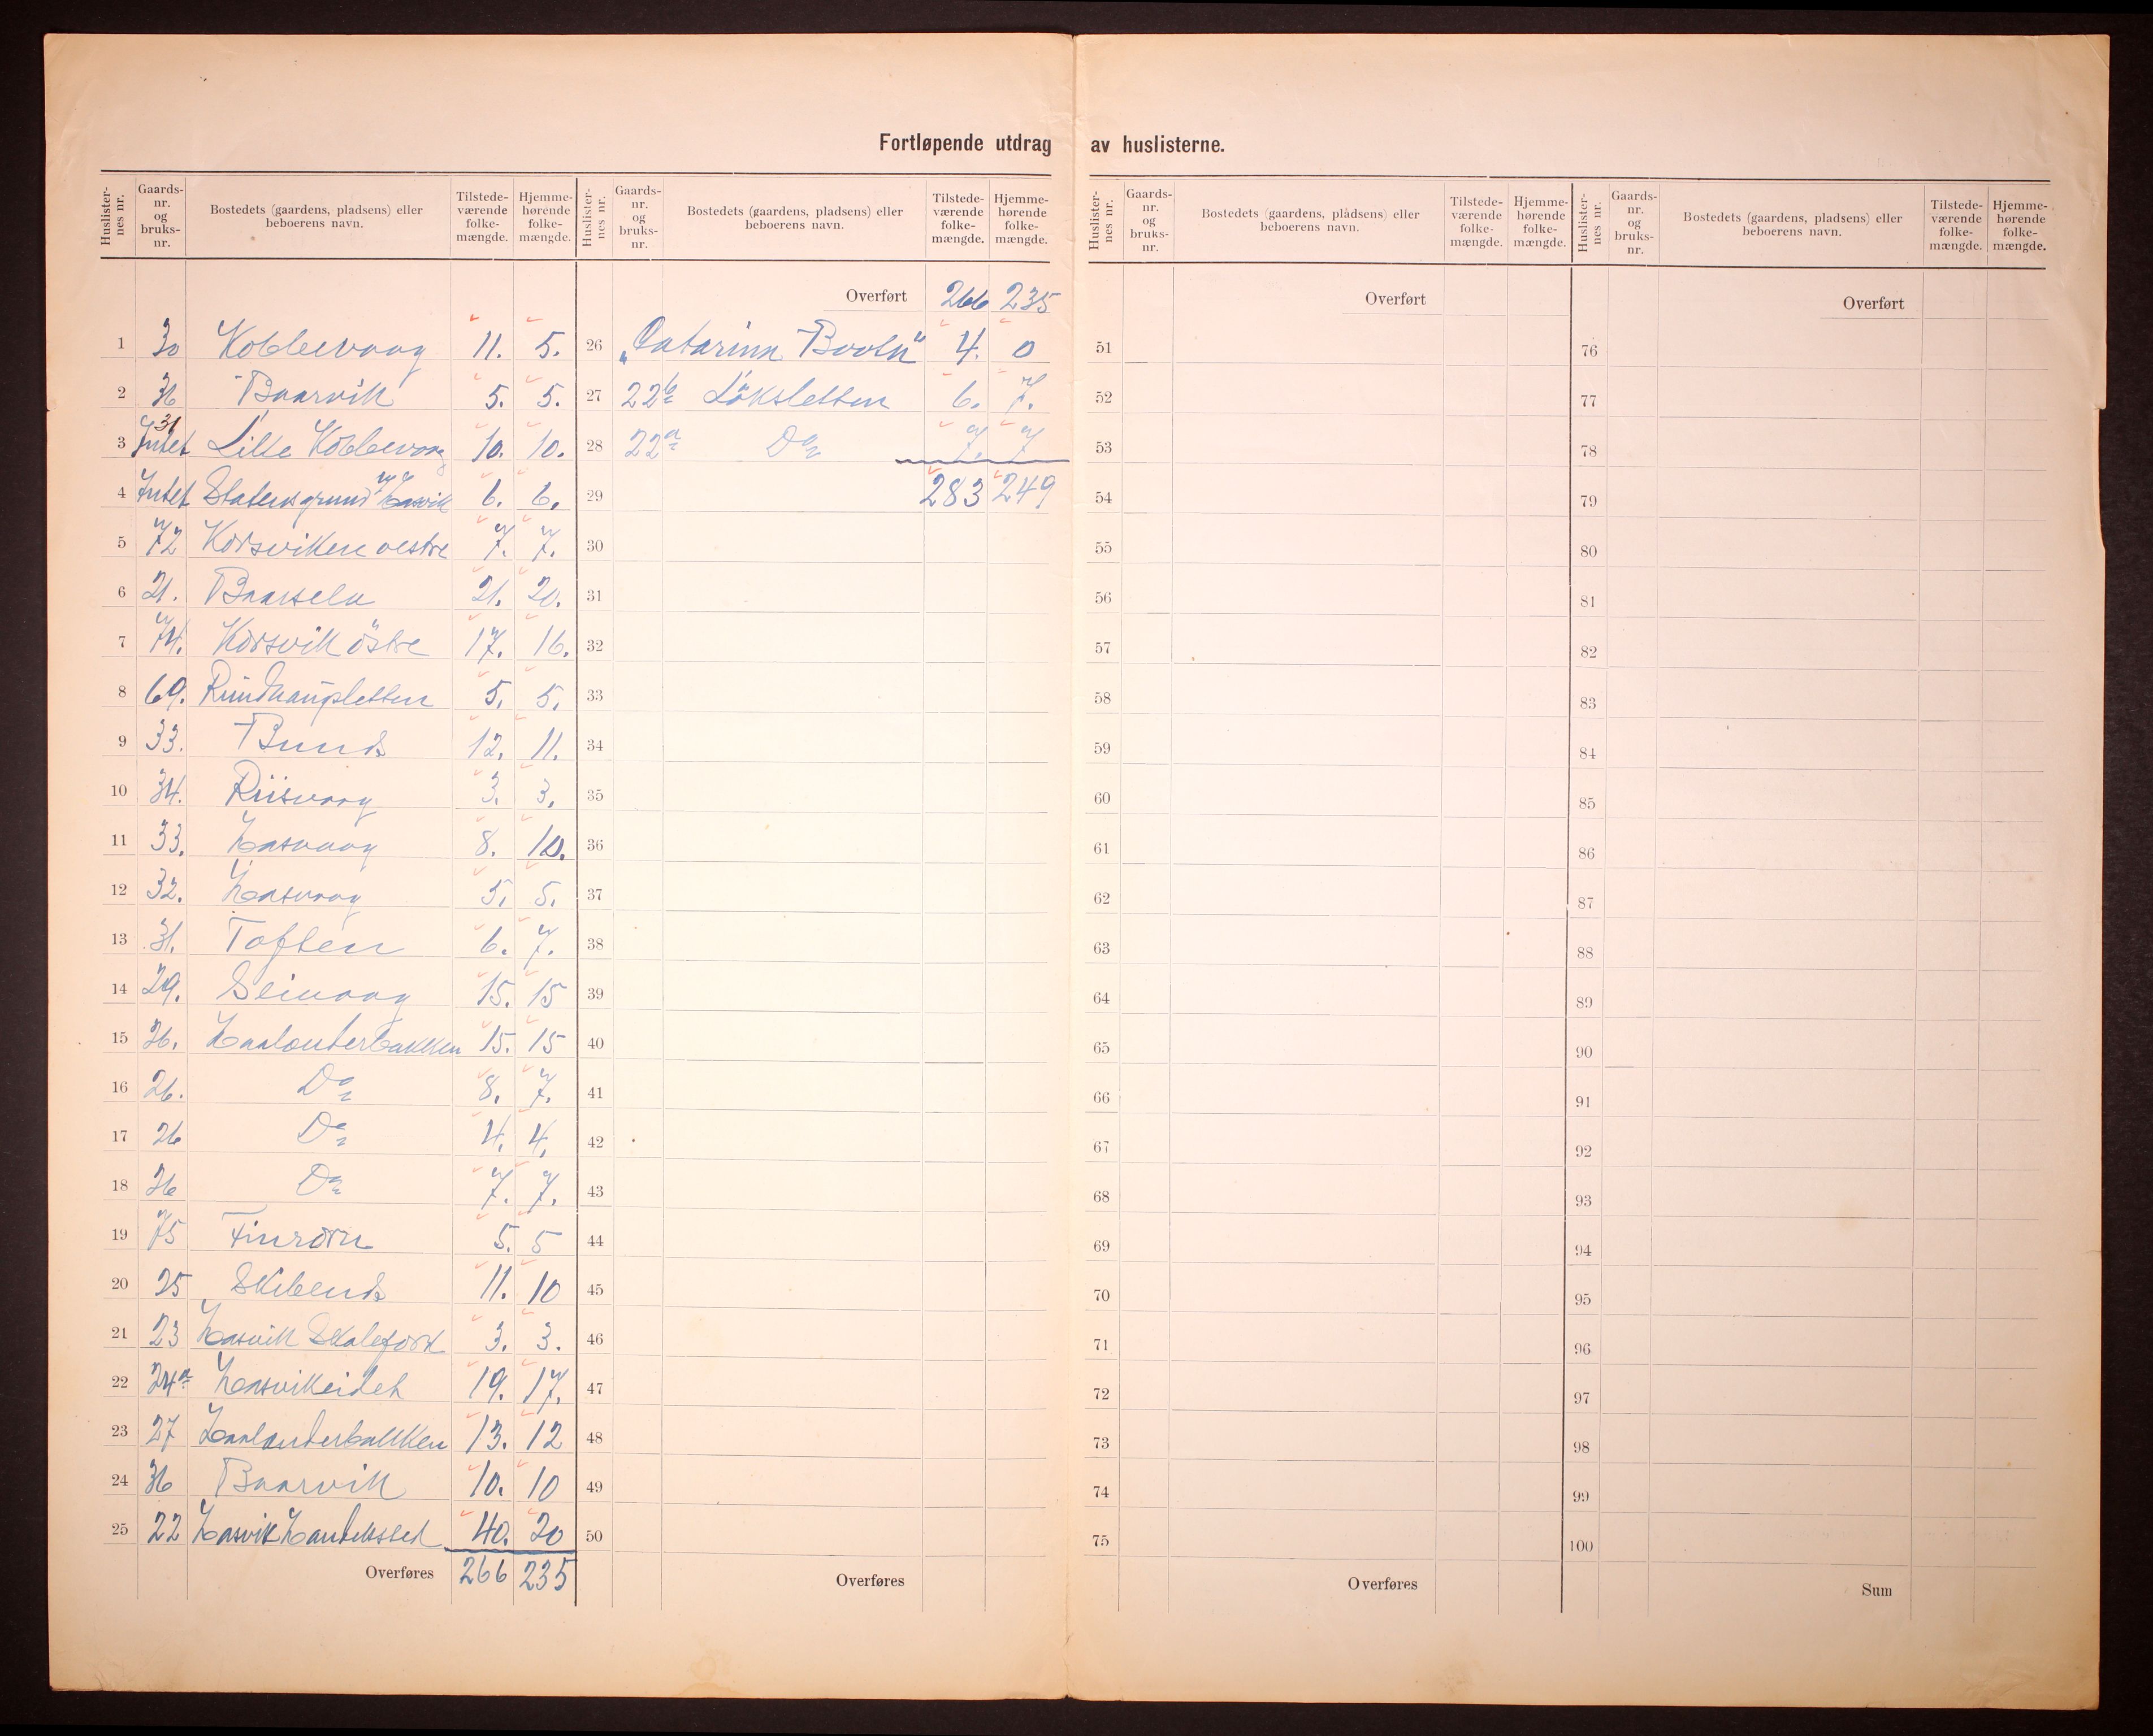 Fortløpende utdrag av huslisterne.
Huslister-nes nr. Gaards-nr. og bruks-nr. Bostedets (gaardens, pladsens) eller beboerens navn. Tilstede-værende folke-mængde. Hjemme-hørende folke-mængde.
1 30 Kobbevaag 11. 5.
2 36 Baarvik 5. 5.
3 Intet 31 Lille Kobbevaag 10. 10.
4 Intet Statensgrund Hasvik 6. 6.
5 72 Korsviken vestre 7. 7.
6 21. Baarsela 21. 20.
7 74. Korsvik östre 17. 16.
8 69. Rundhaugsletten 5. 5.
9 33. Bund 12. 11.
10 34. Riisvaag 3. 3.
11 33. Hasvaag 8. 10.
12 32. Hasvaag 5. 5.
13 31. Toften 6. 7.
14 29. Seivaag 15. 15
15 26. Haalænderbakken 15. 15
16 26. Do 8. 7.
17 26 Do 4. 4.
18 26 Do 7. 7.
19 75 Finrörn 5. 5
20 25 Skibend 11. 10
21 23 Hasvik Skalefork 3. 3.
22 24a Hasvikeidet 19. 17.
23 27 Haalænderbakken 13. 12
24 36 Baarvik 10. 10
25 22 Hasvik Handelssted 40. 20
Overføres 266 235
Huslister-nes nr. Gaards-nr. og bruks-nr. Bostedets (gaardens, pladsens) eller beboerens navn. Tilstede-værende folke-mængde. Hjemme-hørende folke-mængde.
Overført 266 235
26 „Catarina Booth" 4. 0
27 22b Löksletten 6. 7.
28 22a Do 7. 7
29 283 249
30
31
32
33
34
35
36
37
38
39
40
41
42
43
44
45
46
47
48
49
50
Overføres
Huslister-nes nr. Gaards-nr. og bruks-nr. Bostedets (gaardens, pladsens) eller beboerens navn. Tilstede-værende folke-mængde. Hjemme-hørende folke-mængde.
Overført
51
52
53
54
55
56
57
58
59
60
61
62
63
64
65
66
67
68
69
70
71
72
73
74
75
Overføres
Huslister-nes nr. Gaards-nr. og bruks-nr. Bostedets (gaardens, pladsens) eller beboerens navn. Tilstede-værende folke-mængde. Hjemme-hørende folke-mængde.
Overført
76
77
78
79
80
81
82
83
84
85
86
87
88
89
90
91
92
93
94
95
96
97
98
99
100
Sum